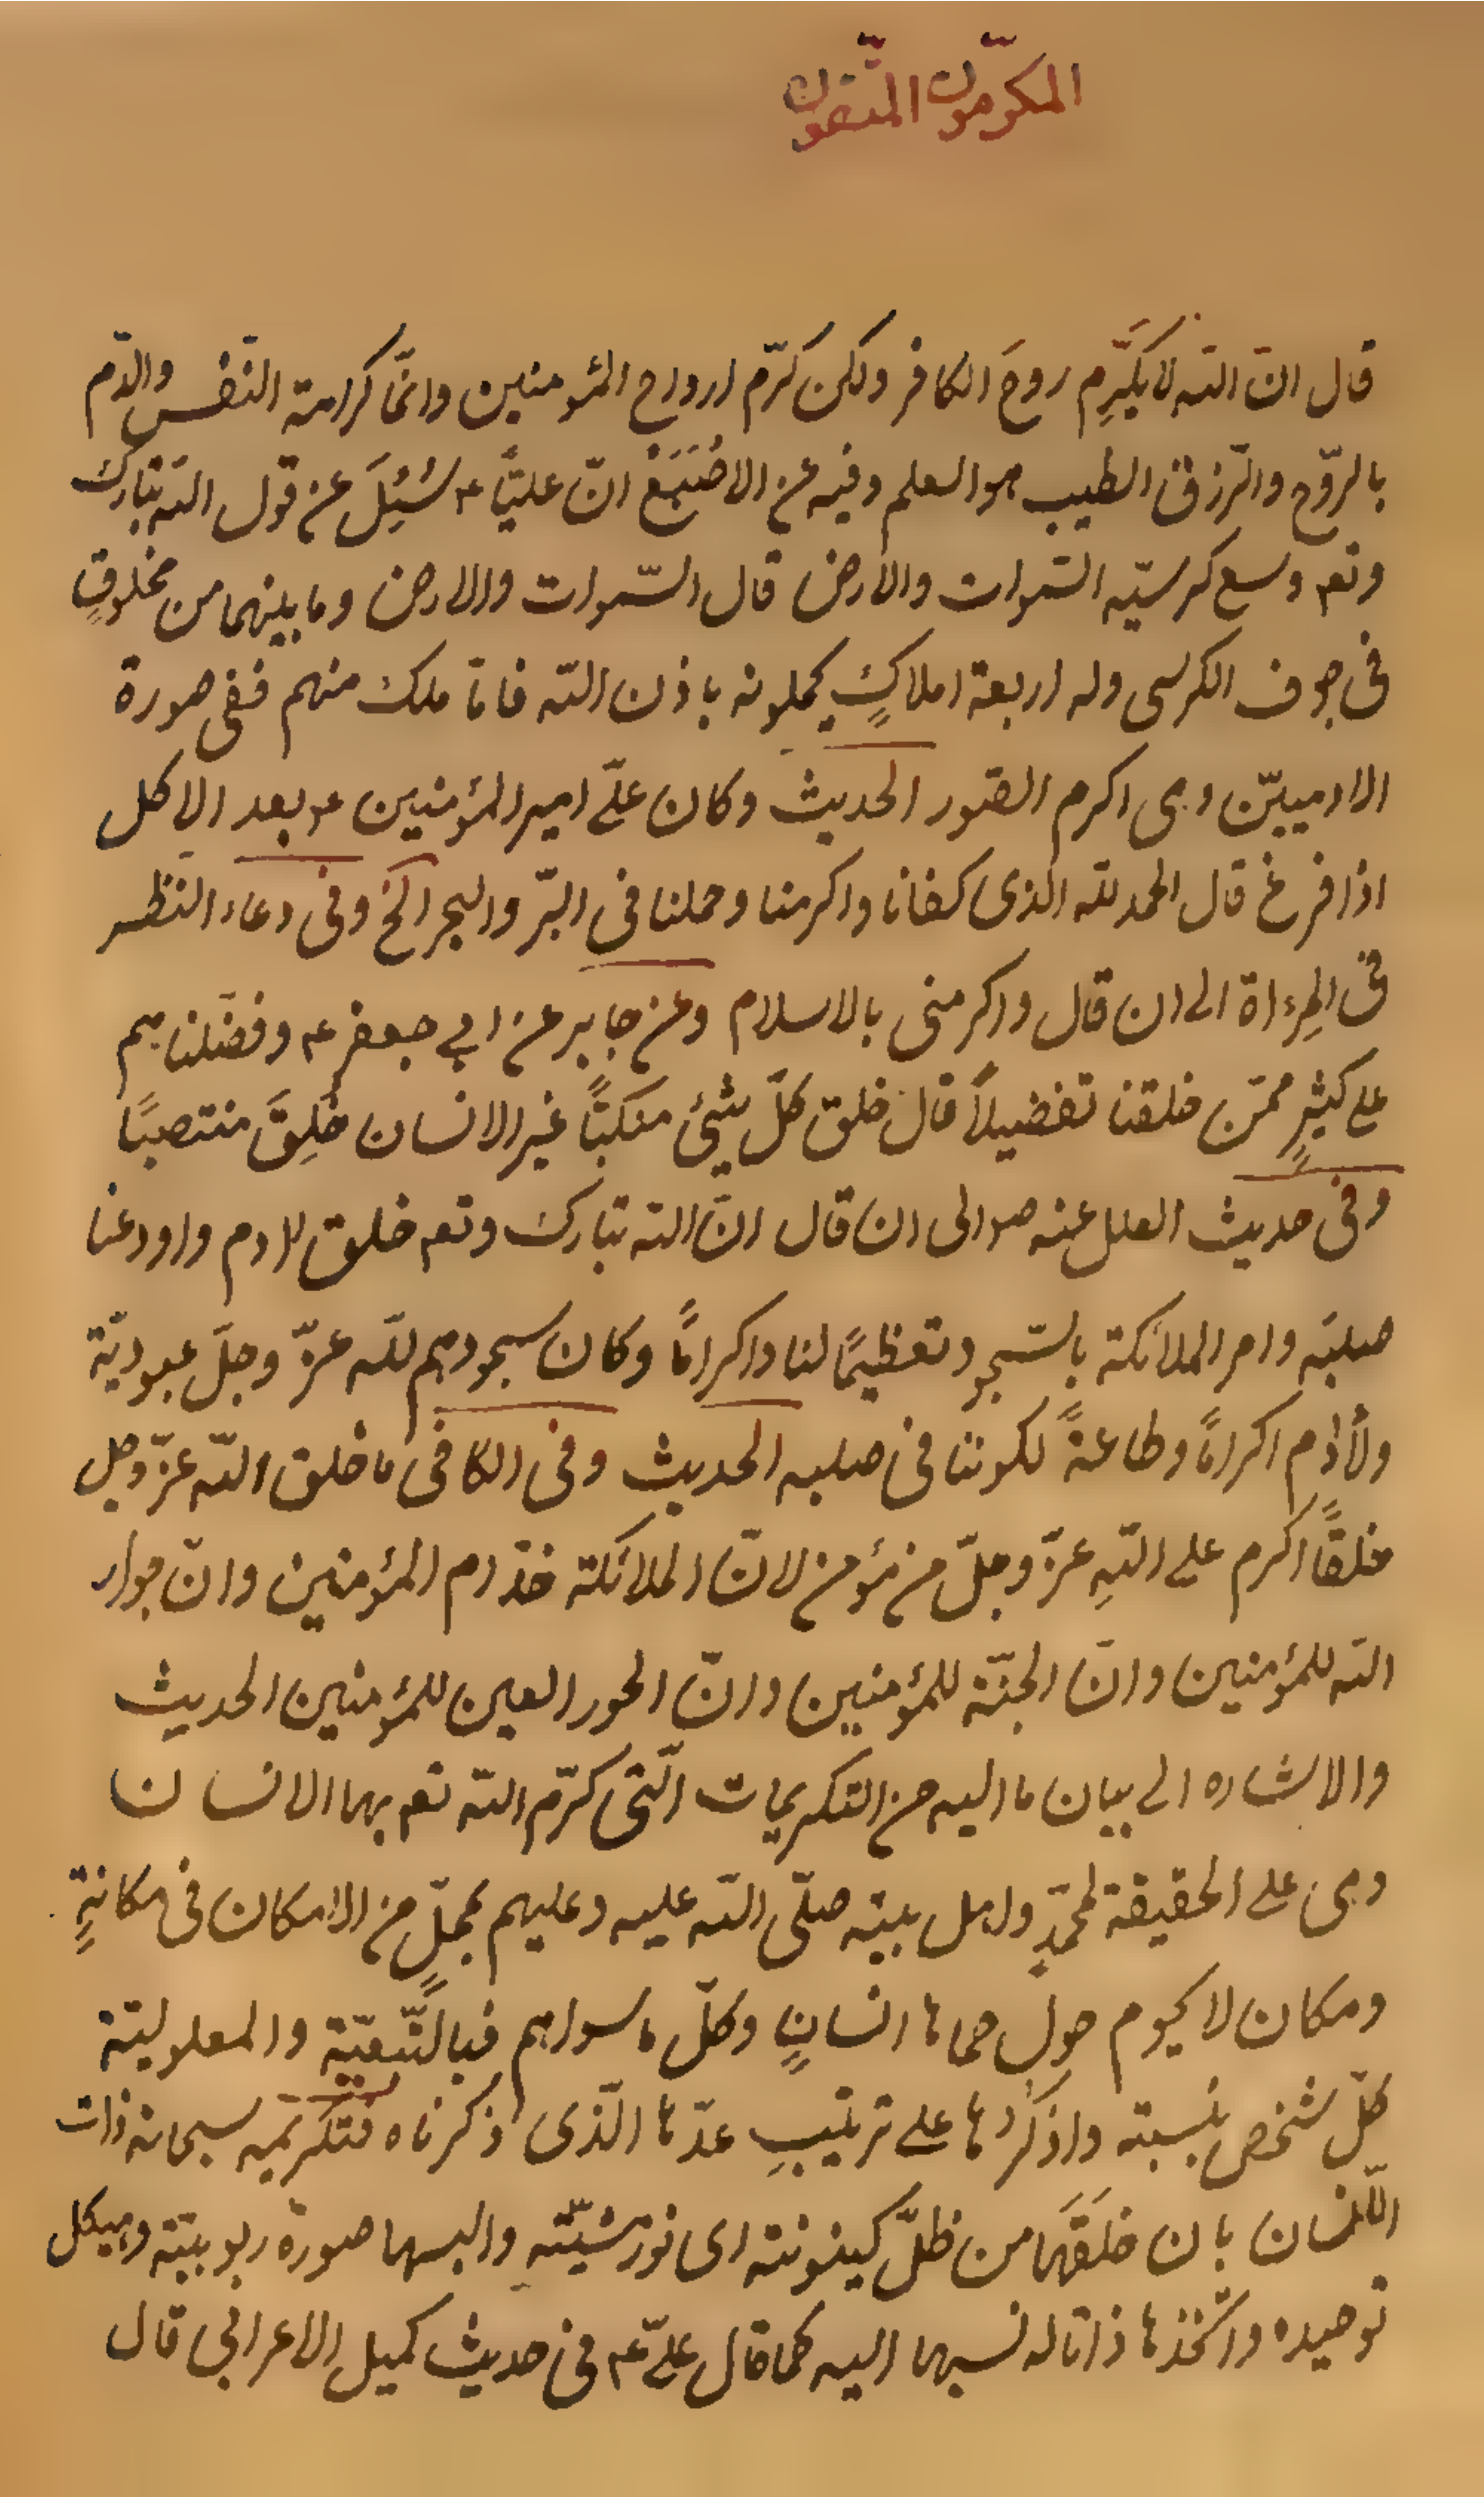 المكرّمون المتّقون
قال انّ اللّه لا يكرِّم روحَ الكافر ولكن كرّم ارواح المؤمنين وانّما كرامة النّفس والدّم
بالرّوح والرّزق الطيب هو العلم وفيه عن الاصْبَغ انّ عليًّا ع سُئِلَ عن قول اللّه تبارك
وتع وسع كرسيّه السّموات والأرض قال السّموات والارض وما بينهما من مخلوقٍ
فى جوف الكرسى وله اربعة املاكٍ يحملونه باذن اللّه فامّا ملك منهم ففى صورة
الادميّين وهى اكرم الصّور الحديث وكان علىّ امير المؤمنين ع بعد الاكل
اذا فرغ قال الحمد للّه الّذى كفانا واكرمنا وحملنا فى البرّ والبحر الخ وفى دعاء النّظر
فى المِرءاة الى ان قال واكرمنى بالاسلام وعن جابر عن ابى جعفر ع وفضّلناهم
على كثيرٍ ممّن خلقنا تفضيلاً قال خلق كلّ شئ منكبًّا غير الانسان خُلِقَ منتصبًا
وفى حديث العلل عنه ص الى ان قال انّ اللّه تبارك وتع خلق ادم واودعنا
صلبَه وامر الملائكة بالسّجود تعظيمًا لنا واكرامًا وكان سجودهم للّه عزّ وجلّ عبوديّة
ولأدم اكرامًا وطاعةً لكوننا فى صلبه الحديث وفى الكافى ما خلق اللّه عزّ وجل
خلقًا اكرم على اللّهِ عزّ وجلّ من مؤمن لانّ الملائكة خدّام المؤمنين وانّ جوار
اللّه للمؤمنين وانّ الجنّة للمؤمنين وانّ الحور العين للمؤمنين الحديث
والاشاره الى بيان ما اليه من التكريمات الّتى كرّم اللّه تع بها الانسان
وهى على الحقيقة لمحمّدٍ ولاهل بيته صلّى اللّه عليه وعليهم بمحلٍّ من الامكان فى مكانةٍ
ومكان لا يحوم حول حماها انسانٍ وكلّ ما سواهم فبالتّبعيّة والمعلوليّة
كلّ شخص بنسبته واذكُرُها على ترتيبِ عدّها الّذى ذكرناه فتكريمه سبحانه ذات
الانسان بان خلَقَها من ظلّ كينونته اى نور مشيّتهِ والبسها صورة ربوبيّته وهيكل
توحيده واتّخذها ذاتا له نسبها اليه كما قال علىّ ع فى حديث كميل الاعرابى قال